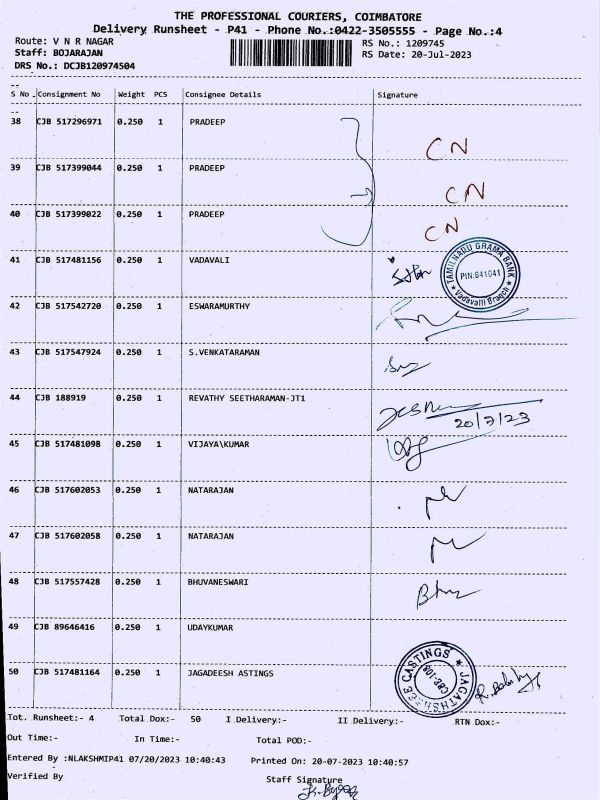 THE PROFESSIONAL COURIERS, COIMBATORE
Delivery Runsheet - P41 - Phone No.:0422-3505555 - Page No.:4
Route: V N R NAGAR
RS No.: 1209745
Staff: BOJARAJAN
RS Date: 20-Jul-2023
DRS No.: DCJB120974504
S No. Consignment No Weight PCS Consignee Details Signature
38 CJB 517296971 0.250 1 PRADEEP CN
39 CJB 517399044 0.250 1 PRADEEP CN
40 CJB 517399022 0.250 1 PRADEEP CN
41 CJB 517481156 0.250 1 VADAVALI
TAMILNADU GRAMA BANK
PIN:641041
Vadavalli Branch
42 CJB 517542720 0.250 1 ESWARAMURTHY
43 CJB 517547924 0.250 1 S.VENKATARAMAN
44 CJB 188919 0.250 1 REVATHY SEETHARAMAN-JT1
20/7/23
45 CJB 517481098 0.250 1 VIJAYA\KUMAR
46 CJB 517602053 0.250 1 NATARAJAN
47 CJB 517602058 0.250 1 NATARAJAN
48 CJB 517557428 0.250 1 BHUVANESWARI
49 CJB 89646416 0.250 1 UDAYKUMAR
50 CJB 517481164 0.250 1 JAGADEESH ASTINGS
Tot. Runsheet:- 4 Total Dox:- 50 I Delivery:- II Delivery:- RTN Dox:-
Out Time:- In Time:- Total POD:-
Entered By :NLAKSHMIP41 07/20/2023 10:40:43 Printed On: 20-07-2023 10:40:57
Verified By Staff Signature